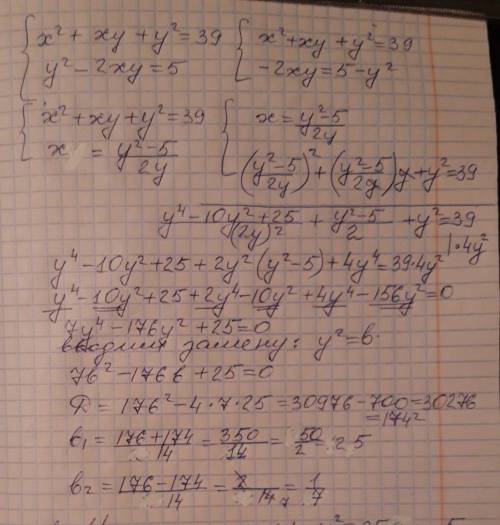 { x² + xy + y² = 39 { x² + xy + y² = 39
y² - 2xy = 5 -2xy = 5 - y²
{ x² + xy + y² = 39 { x = (y²-5)/(2y)
x = (y²-5)/(2y) ((y²-5)/(2y))² + ((y²-5)/(2y))y + y² = 39
(y⁴ - 10y² + 25)/(2y)² + (y²-5)/2 + y² = 39 |·4y²
y⁴ - 10y² + 25 + 2y²(y²-5) + 4y⁴ = 39·4y²
y⁴ - 10y² + 25 + 2y⁴ - 10y² + 4y⁴ - 156y² = 0
7y⁴ - 176y² + 25 = 0
вводим замену: y² = в.
7в² - 176в + 25 = 0
Д = 176² - 4·7·25 = 30976 - 700 = 30276
= 174²
в₁ = (176+174)/14 = 350/14 = 50/2 = 25
в₂ = (176-174)/14 = 2/14 = 1/7